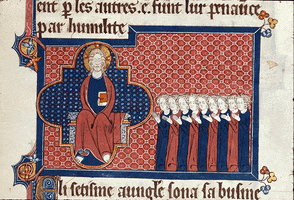 ent ꝑ les autres. ⁊ sunt lur penance
par humilite
Li setisme aungle sona sa busine